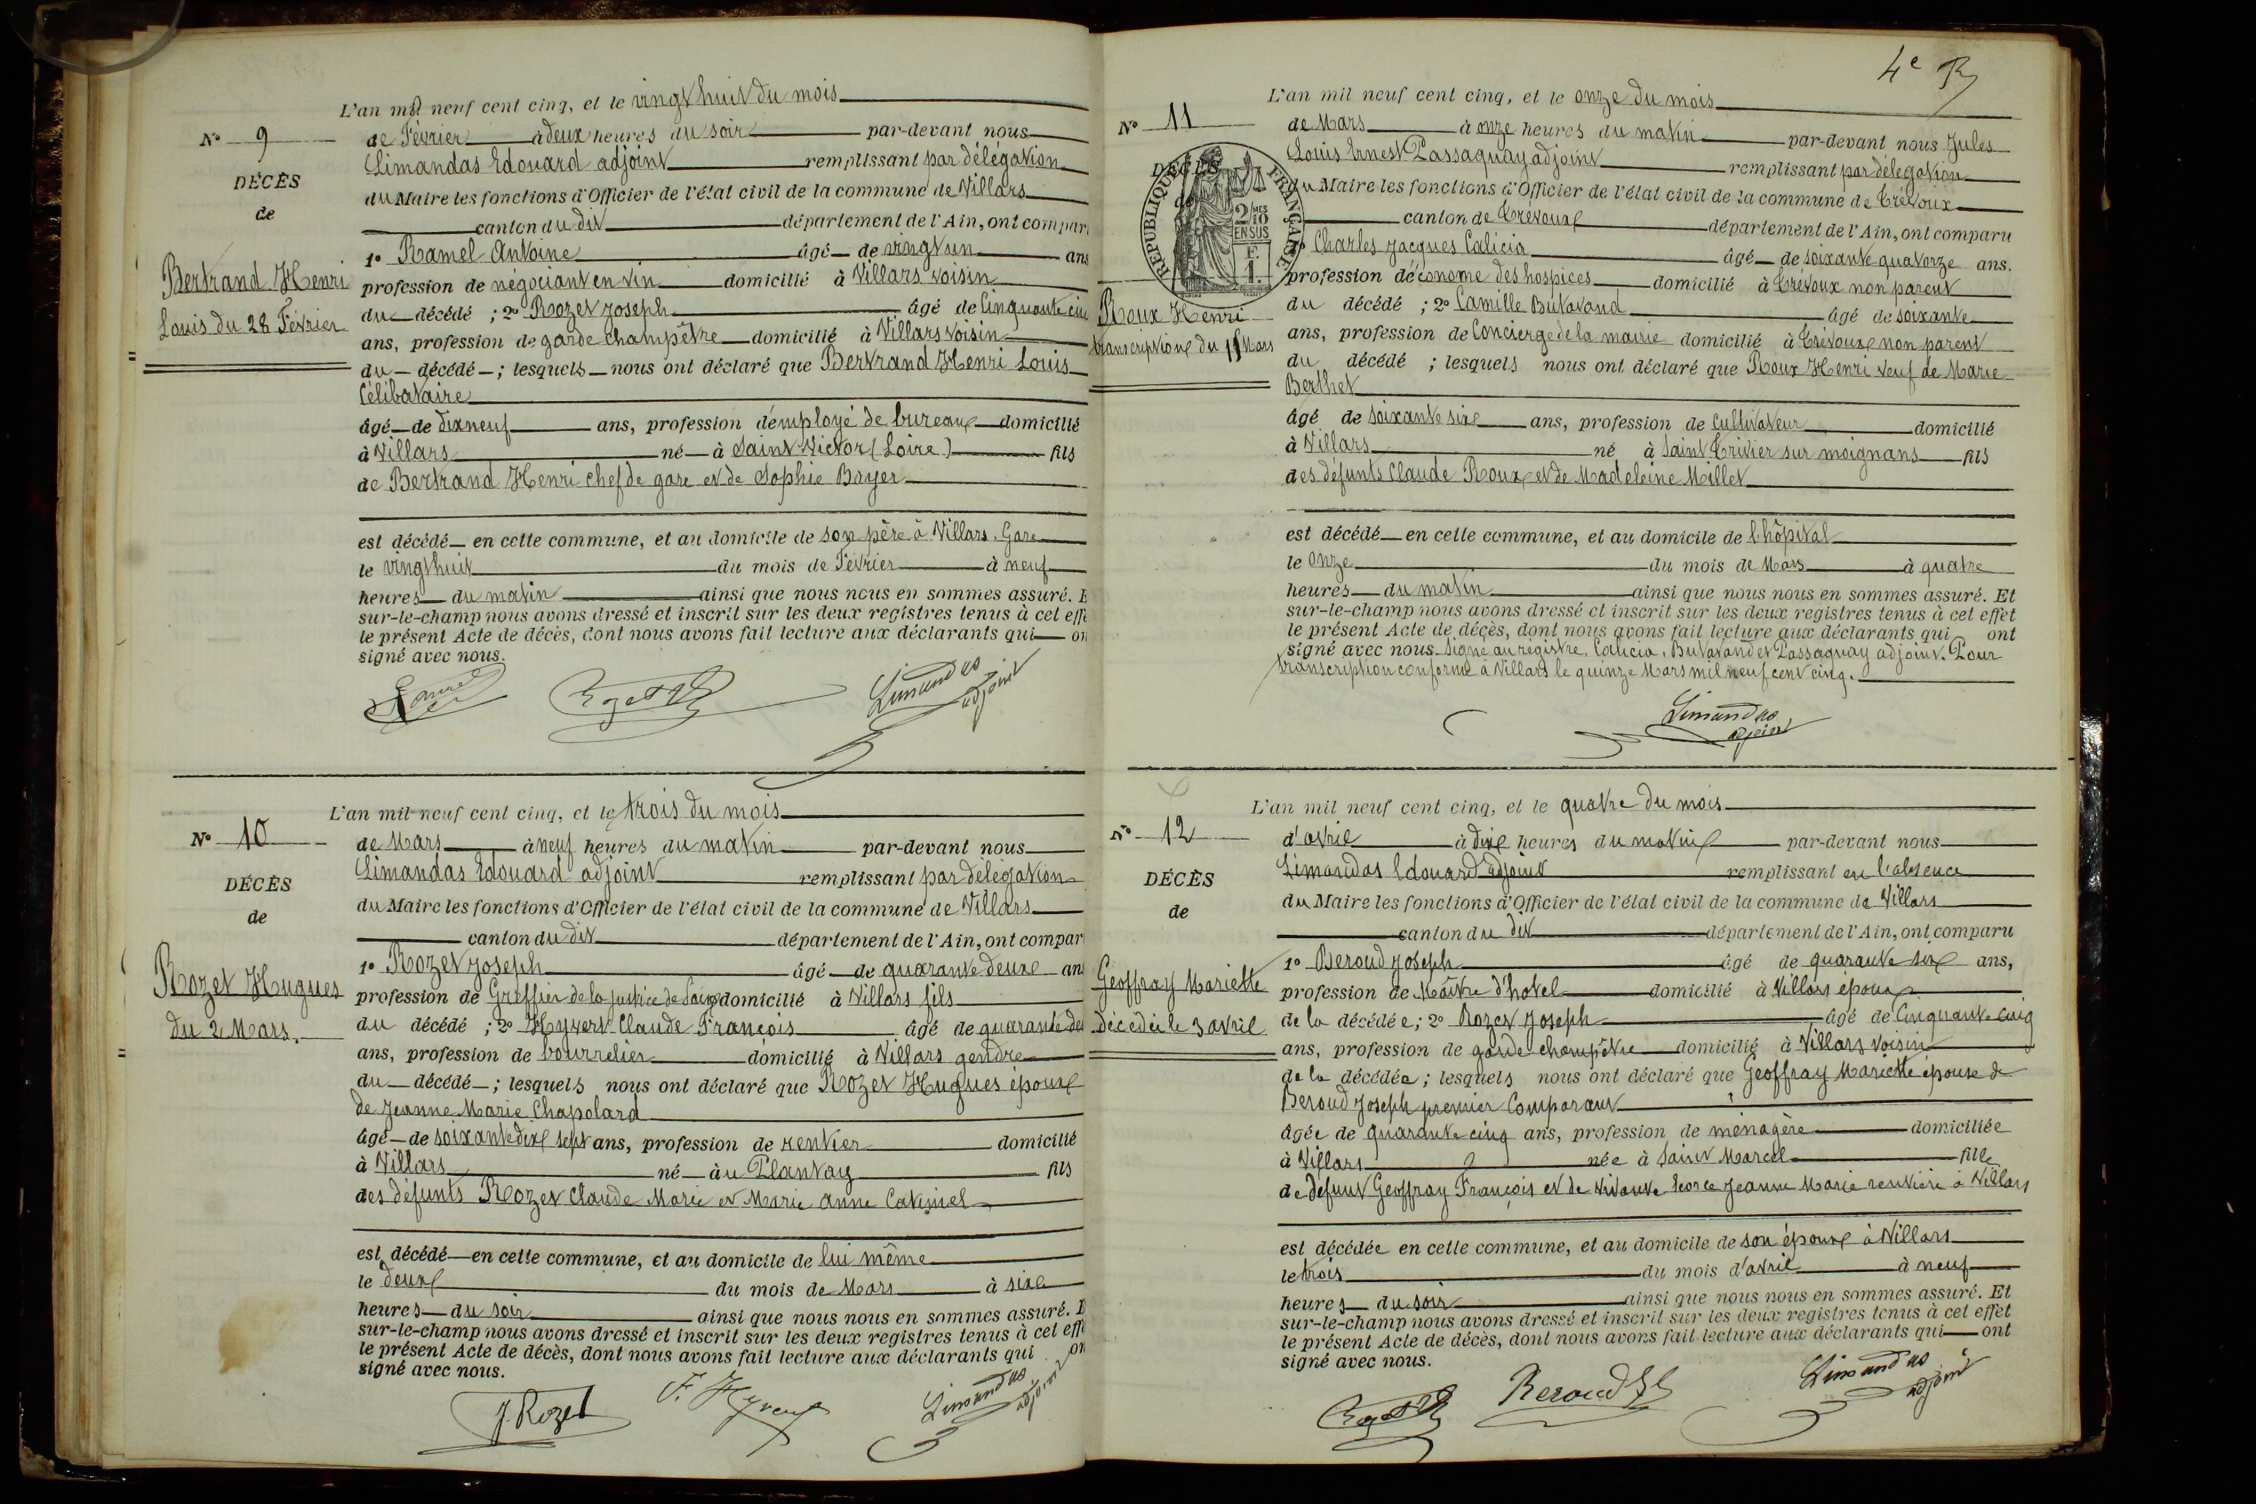 L'an mil neuf cent cinq, et le vingt huit du mois
N° 9
de Février à deux heures du soir par-devant nous
Limandas Edouard adjoint remplissant par délégation
DÉCÈS
du Maire les fonctions d'Officier de l'état civil de la commune de Villars
de
canton du dit département de l'Ain, ont compar
1° Ramel Antoine âgé de vingt un ans
Bertrand Henri
profession de négociant en vin domicilié à Villars voisin
Louis du 28 Février
du décédé ; 2° Rozet Joseph âgé de Cinquante cin
ans, profession de garde champêtre domicilié à Villars voisin
du décédé ; lesquels nous ont déclaré que Bertrand Henri Louis
Célibataire
âgé de dix neuf ans, profession d'employé de bureau domicilié
à Villars né à Saint Victor (Loire) fils
de Bertrand Henri chef de gare et de Sophie Boyer
est décédé en cette commune, et au domicile de son père à Villars Gare
le vingt huit du mois de Février à neuf
heures du matin ainsi que nous nous en sommes assuré. E
sur-le-champ nous avons dressé et inscrit sur les deux registres tenus à cet effe
le présent Acte de décès, dont nous avons fait lecture aux déclarants qui on
signé avec nous.
Limandas
adjoint
L'an mil neuf cent cinq, et le trois du mois
N° 10
de Mars à neuf heures du matin par-devant nous
Limandas Edouard adjoint remplissant par délégation
DÉCÈS
du Maire les fonctions d'Officier de l'état civil de la commune de Villars
de
canton du dit département de l'Ain, ont compar
1° Rozet Joseph âgé de quarante deux ans
Rozet Hugues
profession de Greffier de la justice de Paix domicilié à Villars fils
du 2 Mars.
du décédé ; 2° Hyvert Claude François âgé de quarante de
ans, profession de bourrelier domicilié à Villars gendre
du décédé ; lesquels nous ont déclaré que Rozet Hugues époux
de Jeanne Marie Chapolard
âgé de soixante dix sept ans, profession de rentier domicilié
à Villars né au Plantay fils
des défunts Rozet Claude Marie et Marie Anne
est décédé en cette commune, et au domicile de lui même
le deux du mois de Mars à six
heures du soir ainsi que nous nous en sommes assuré. E
sur-le-champ nous avons dressé et inscrit sur les deux registres tenus à cet effe
le présent Acte de décès, dont nous avons fait lecture aux déclarants qui on
signé avec nous.
J. Rozet
Limandas
adjoint
4e
L'an mil neuf cent cinq, et le onze du mois
N° 11
de Mars à onze heures du matin par-devant nous Jules
Louis Ernest Passaquay adjoint remplissant par délégation
DÉCÈS
du Maire les fonctions d'Officier de l'état civil de la commune de Trévoux
de
RÉPUBLIQUE FRANÇAISE
2/10 MES
EN SUS
F.
1.
canton de Trévoux département de l'Ain, ont comparu
1° Charles Jacques Calicia âgé de soixante quatorze ans.
profession d'économe des hospices domicilié à Trévoux non parent
Roux Henri
du décédé ; 2° Camille Butavand âgé de soixante
transcription du 11 Mars
ans, profession de Concierge de la mairie domicilié à Trévoux non parent
du décédé ; lesquels nous ont déclaré que Roux Henri veuf de Marie
Berthet
âgé de soixante six ans, profession de Cultivateur domicilié
à Villars né à Saint Trivier sur moignans fils
des défunts Claude Roux et de Madeleine Millet
est décédé en cette commune, et au domicile de l'hôpital
le onze du mois de Mars à quatre
heures du matin ainsi que nous nous en sommes assuré. Et
sur-le-champ nous avons dressé et inscrit sur les deux registres tenus à cet effet
le présent Acte de décès, dont nous avons fait lecture aux déclarants qui ont
signé avec nous. Signé au registre, Calicia, Butavand et Passaquay adjoint. Pour
transcription conforme à Villars le quinze Mars mil neuf cent cinq.
Limandas
adjoint
L'an mil neuf cent cinq, et le quatre du mois
N° 12
d'avril à dix heures du matin par-devant nous
Limandas Edouard adjoint remplissant en l'absence
DÉCÈS
du Maire les fonctions d'Officier de l'état civil de la commune de Villars
de
canton du dit département de l'Ain, ont comparu
1° Beroud Joseph âgé de quarante six ans,
Geoffray Mariette
profession de Maître d'hotel domicilié à Villars époux
décédée le 3 avril
de la décédée ; 2° Rozet Joseph âgé de Cinquante cinq
ans, profession de garde champêtre domicilié à Villars voisin
de la décédée ; lesquels nous ont déclaré que Geoffray Mariette épouse de
Beroud Joseph premier Comparant
âgée de quarante cinq ans, profession de ménagère domiciliée
à Villars née à Saint Marcel fille
de défunt Geoffray François et de vivante Jeanne Marie rentière à Villars
est décédée en cette commune, et au domicile de son époux à Villars
le trois du mois d'avril à neuf
heures du soir ainsi que nous nous en sommes assuré. Et
sur-le-champ nous avons dressé et inscrit sur les deux registres tenus à cet effet
le présent Acte de décès, dont nous avons fait lecture aux déclarants qui ont
signé avec nous.
Beroud
Limandas
adjoint